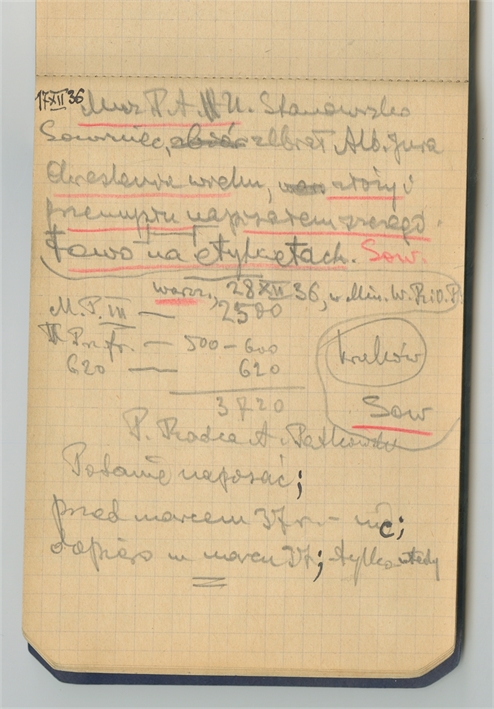 17 XII 36 Muz P. A. U. Stanowisko
Sowiniec, zebrał Alb. Jura
Określenie wieku, warstwy i
przemysłu napisałem szczegó-
łowo na etykietach. Sow.
Warsz., 28 XII 36, w Min. W. R. i O. P.
M. P. III — 2500
II Profr. — 500 – 600
620 — 620
3720
Kraków
Sow
P. Radca A. Patkowski
Podanie napisać;
przed marcem 37 r. – nic;
dopiero w marcu 37; tylko wtedy